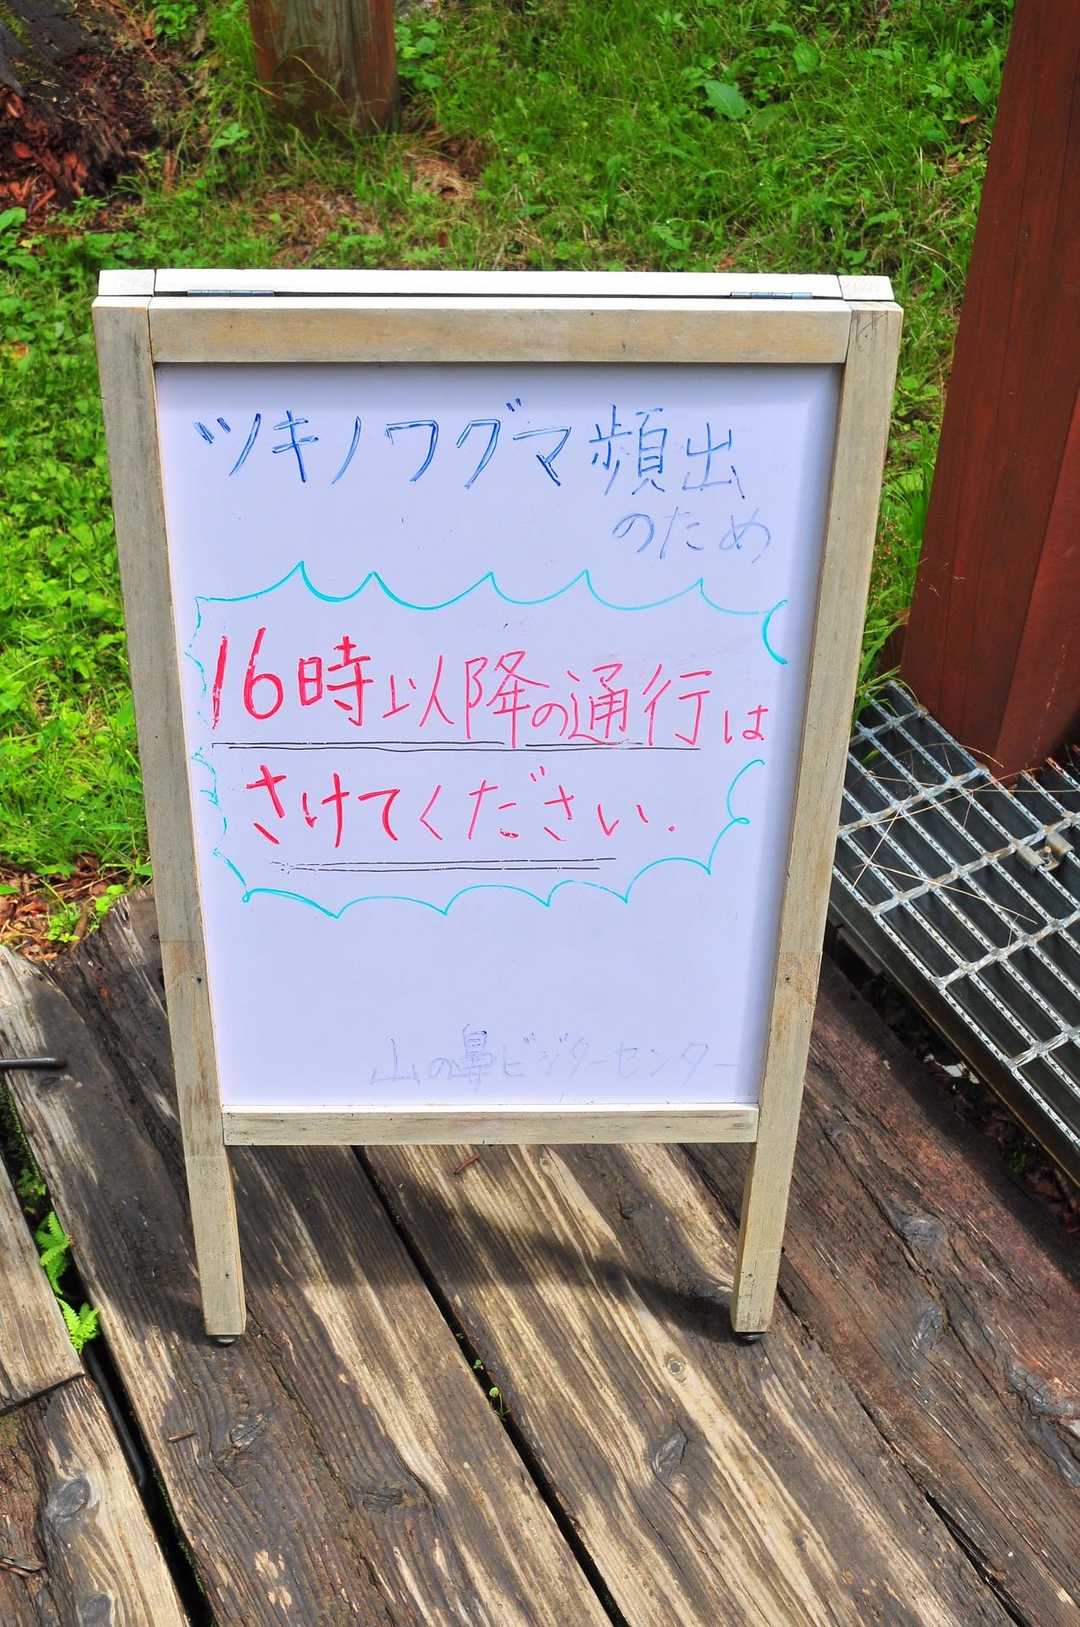 ツキノワグマ頻出
のため
16時以降の通行は
さけてください.
山の鼻ビジターセンター